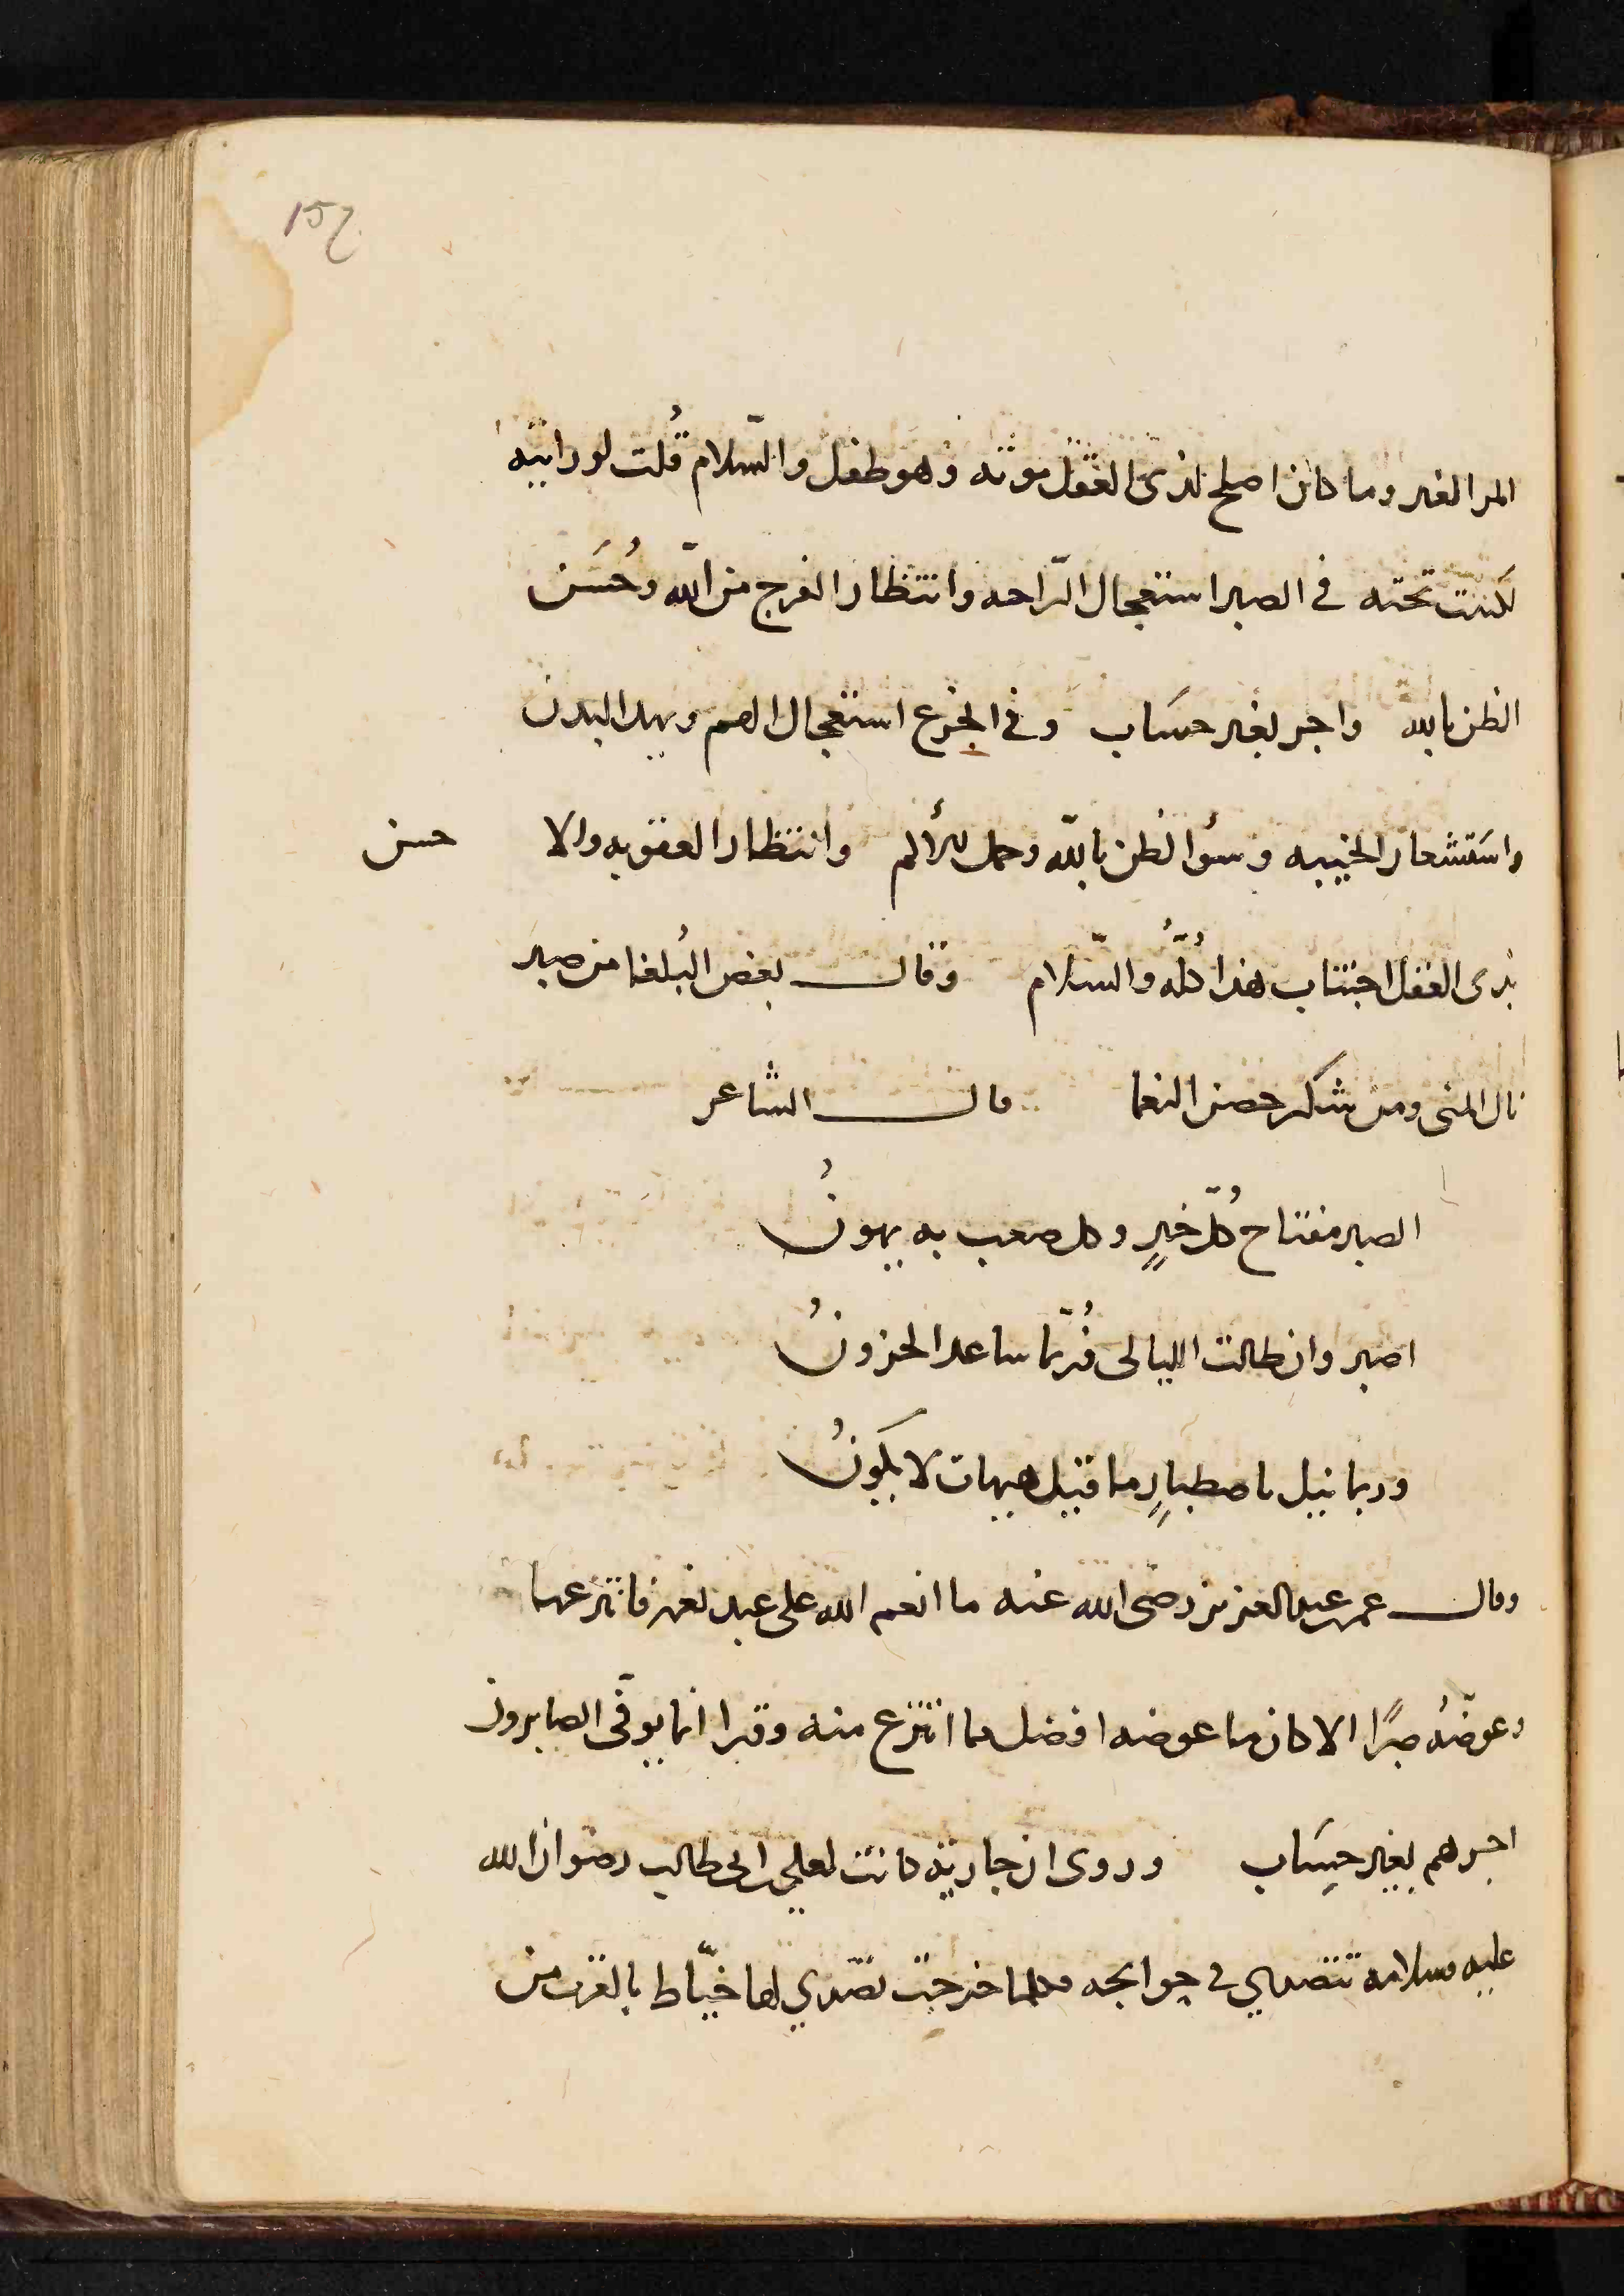 157
المر الغير وما كان اصلح لذى العقل موته وهو طفل والسّلام قُلت لو رايته
لكنت تحته في الصبر استعجال الرّاحه وانتظار الفرج من الله وحُسَن
الظن بالله واجر بغير حسَاب وفي الجزع استعجال الهم ويهد البدن
واسَتشعار الخيبه وسؤ الظن بالله وحمل للألم وانتظار العقوبه والا حسن
بذى العقل اجتناب هذا كلُّه والسّلام وقال بعض البُلغا من صبر
نال المنى ومن شكر حصن النعما قال الشاعر
الصبر مفتاح كُلّ خيرٍ وكل صعب به يهونُ
اصبر وان طالت الليالى فُربّما ساعد الحزونُ
وربما نيل باصطبارٍ ما قيل هيهات لا يكونُ
وقال عمر بن عبد العزيز رضى الله عنه ما انعم الله على عبد نعمه فانتزعها
وعوضّه صبرًا الا كان ما عوضه افضل مما انتزع منه وقرا انما يوفّى الصابرون
اجرهم بغير حسَاب وروى ان جارية كانت لعلي بن ابى طالب رضوان الله
عليه وسلامه تتصدي في حوايجه فكلما خرجت تصّدي لها خيّاط بالقرب من